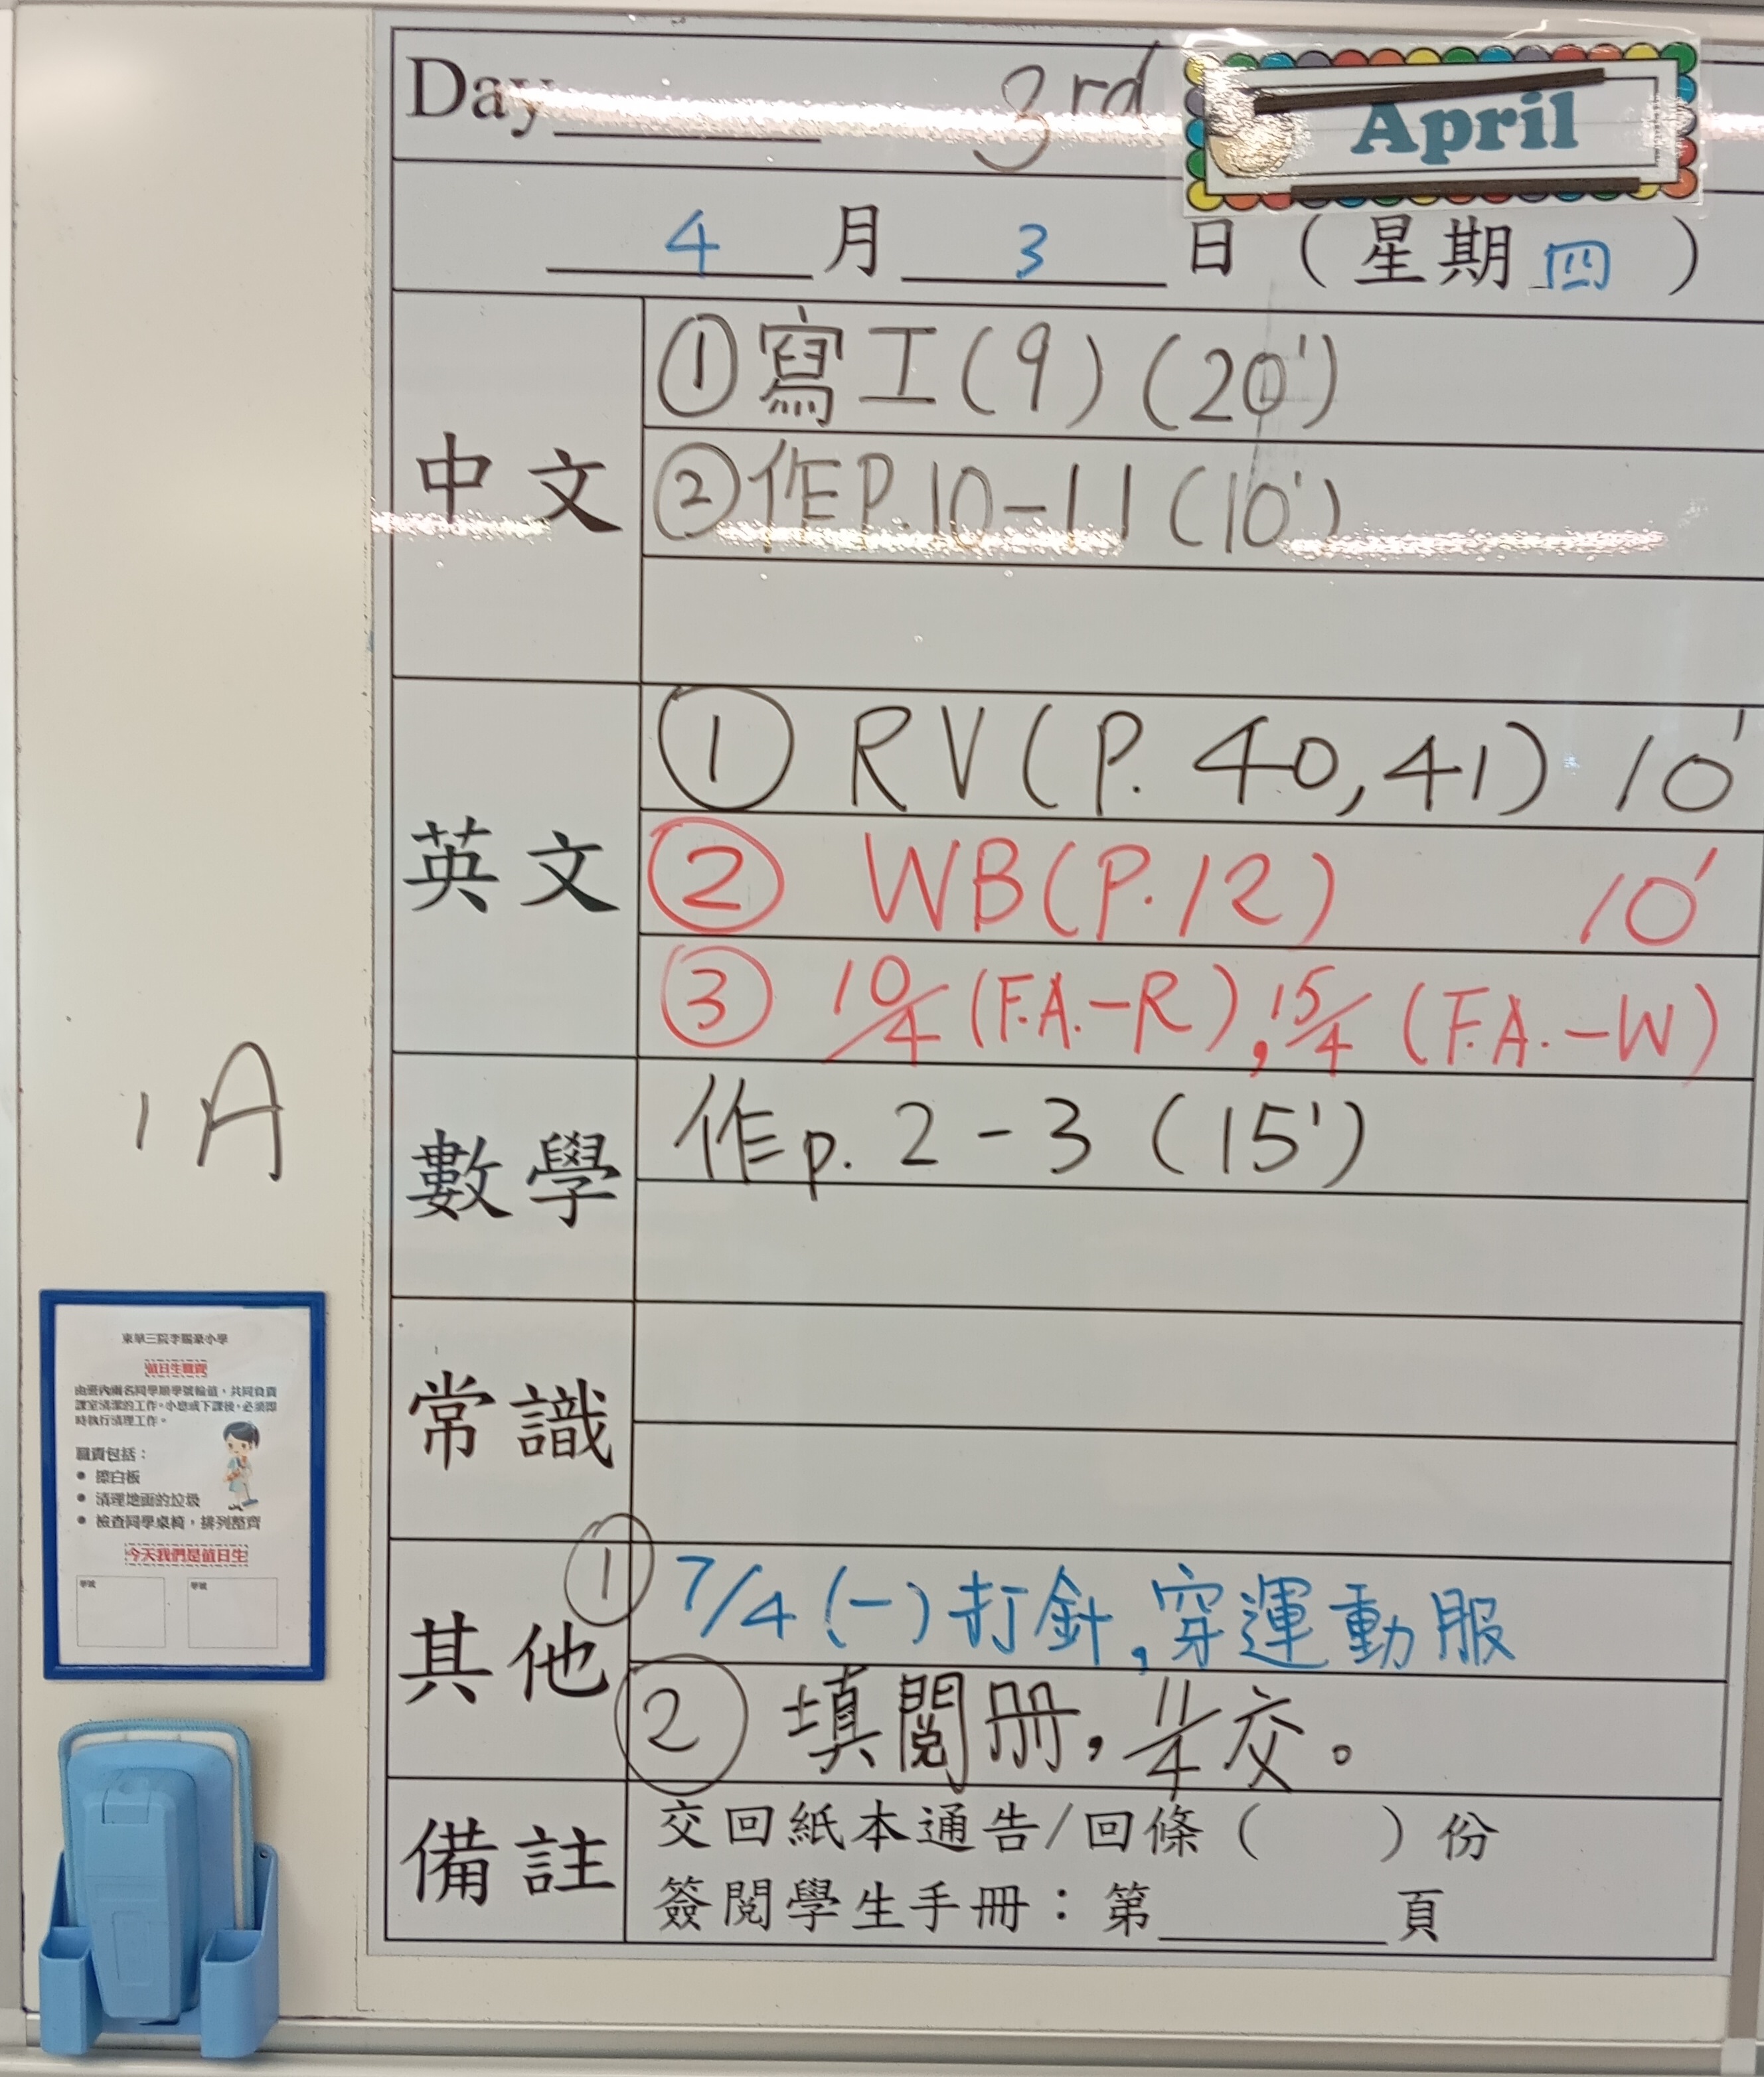 Day 3rd April
4 月 3 日 (星期四)
中文
①寫工(9)(20')
②作P.10-11(10')
英文
① RV(P. 40,41) 10'
② WB(P.12) 10'
③ 10/4 (F.A.-R), 15/4 (F.A.-W)
數學
作p. 2-3 (15')
常識
其他
① 7/4 (一) 打針,穿運動服
② 填閱冊, 11/4交。
備註
交回紙本通告/回條( )份
簽閱學生手冊:第____頁
1A
東華三院李賜豪小學
值日生職責
由班內兩名同學順學號輪值,共同負責
課室清潔的工作。小息或下課後,必須即
時執行清理工作。
職責包括:
● 擦白板
● 清理地面的垃圾
● 檢查同學桌椅,排列整齊
今天我們是值日生
學號 學號